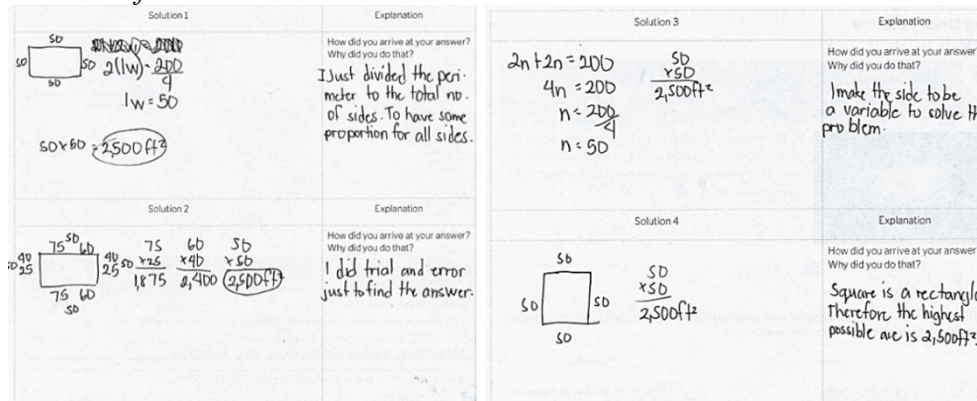 Solution 1
Explanation
50
50
50
50
2(lw) = 200
4
lw = 50
50 x 50 = 2,500 ft²
How did you arrive at your answer?
Why did you do that?
I Just divided the peri-
meter to the total no.
of sides. To have some
proportion for all sides.
Solution 2
Explanation
75 50 60
40
25
40
25 50
75 60
50
75 60 50
x25 x40 x50
1,875 2,400 2,500ft²
How did you arrive at your answer?
Why did you do that?
I did trial and error
just to find the answer.
Solution 3
Explanation
2n+2n = 200
4n = 200
n = 200/4
n = 50
50
x50
2,500ft²
How did you arrive at your answer
Why did you do that?
I make the side to be
a variable to solve th
problem.
Solution 4
Explanation
50
50
50
50
50
x50
2,500ft²
How did you arrive at your answer
Why did you do that?
Square is a rectangle
Therefore the highest
possible are is 2,500ft².